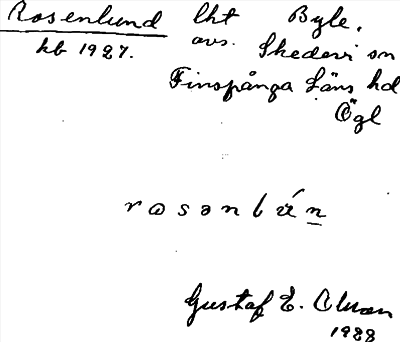 Rosenlund lht Byle,
kb 1927. avs. Skedevi sn
Finspånga Läns hd
Ögl
rosənbún
Gustaf E.
1928